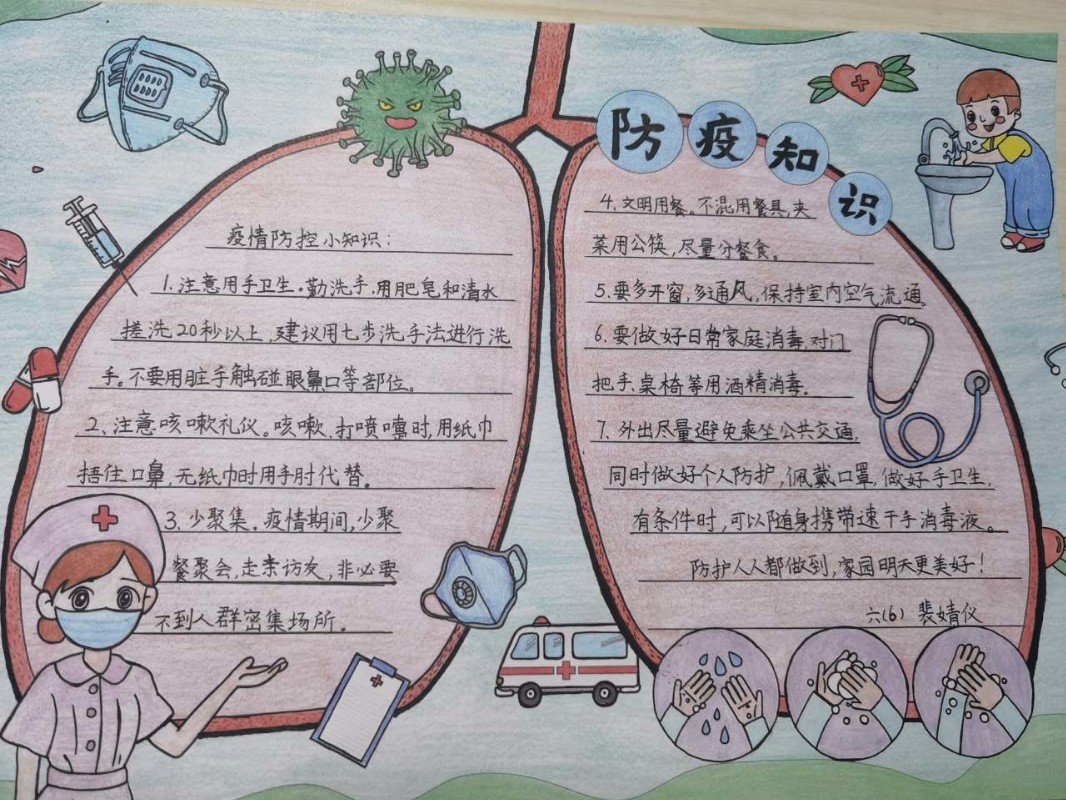 防疫知识
疫情防控小知识：
1.注意用手卫生。勤洗手，用肥皂和清水
搓洗20秒以上，建议用七步洗手法进行洗
手。不要用脏手触碰眼鼻口等部位。
2、注意咳嗽礼仪。咳嗽、打喷嚏时，用纸巾
捂住口鼻，无纸巾时用手肘代替。
3.少聚集。疫情期间，少聚
餐聚会，走亲访友，非必要
不到人群密集场所。
4.文明用餐。不混用餐具，夹
菜用公筷，尽量分餐食。
5.要多开窗，多通风，保持室内空气流通。
6.要做好日常家庭消毒，对门
把手、桌椅等用酒精消毒。
7.外出尽量避免乘坐公共交通，
同时做好个人防护，佩戴口罩，做好手卫生，
有条件时，可以随身携带速干手消毒液。
防护人人都做到，家园明天更美好！
六(6) 裴婧仪